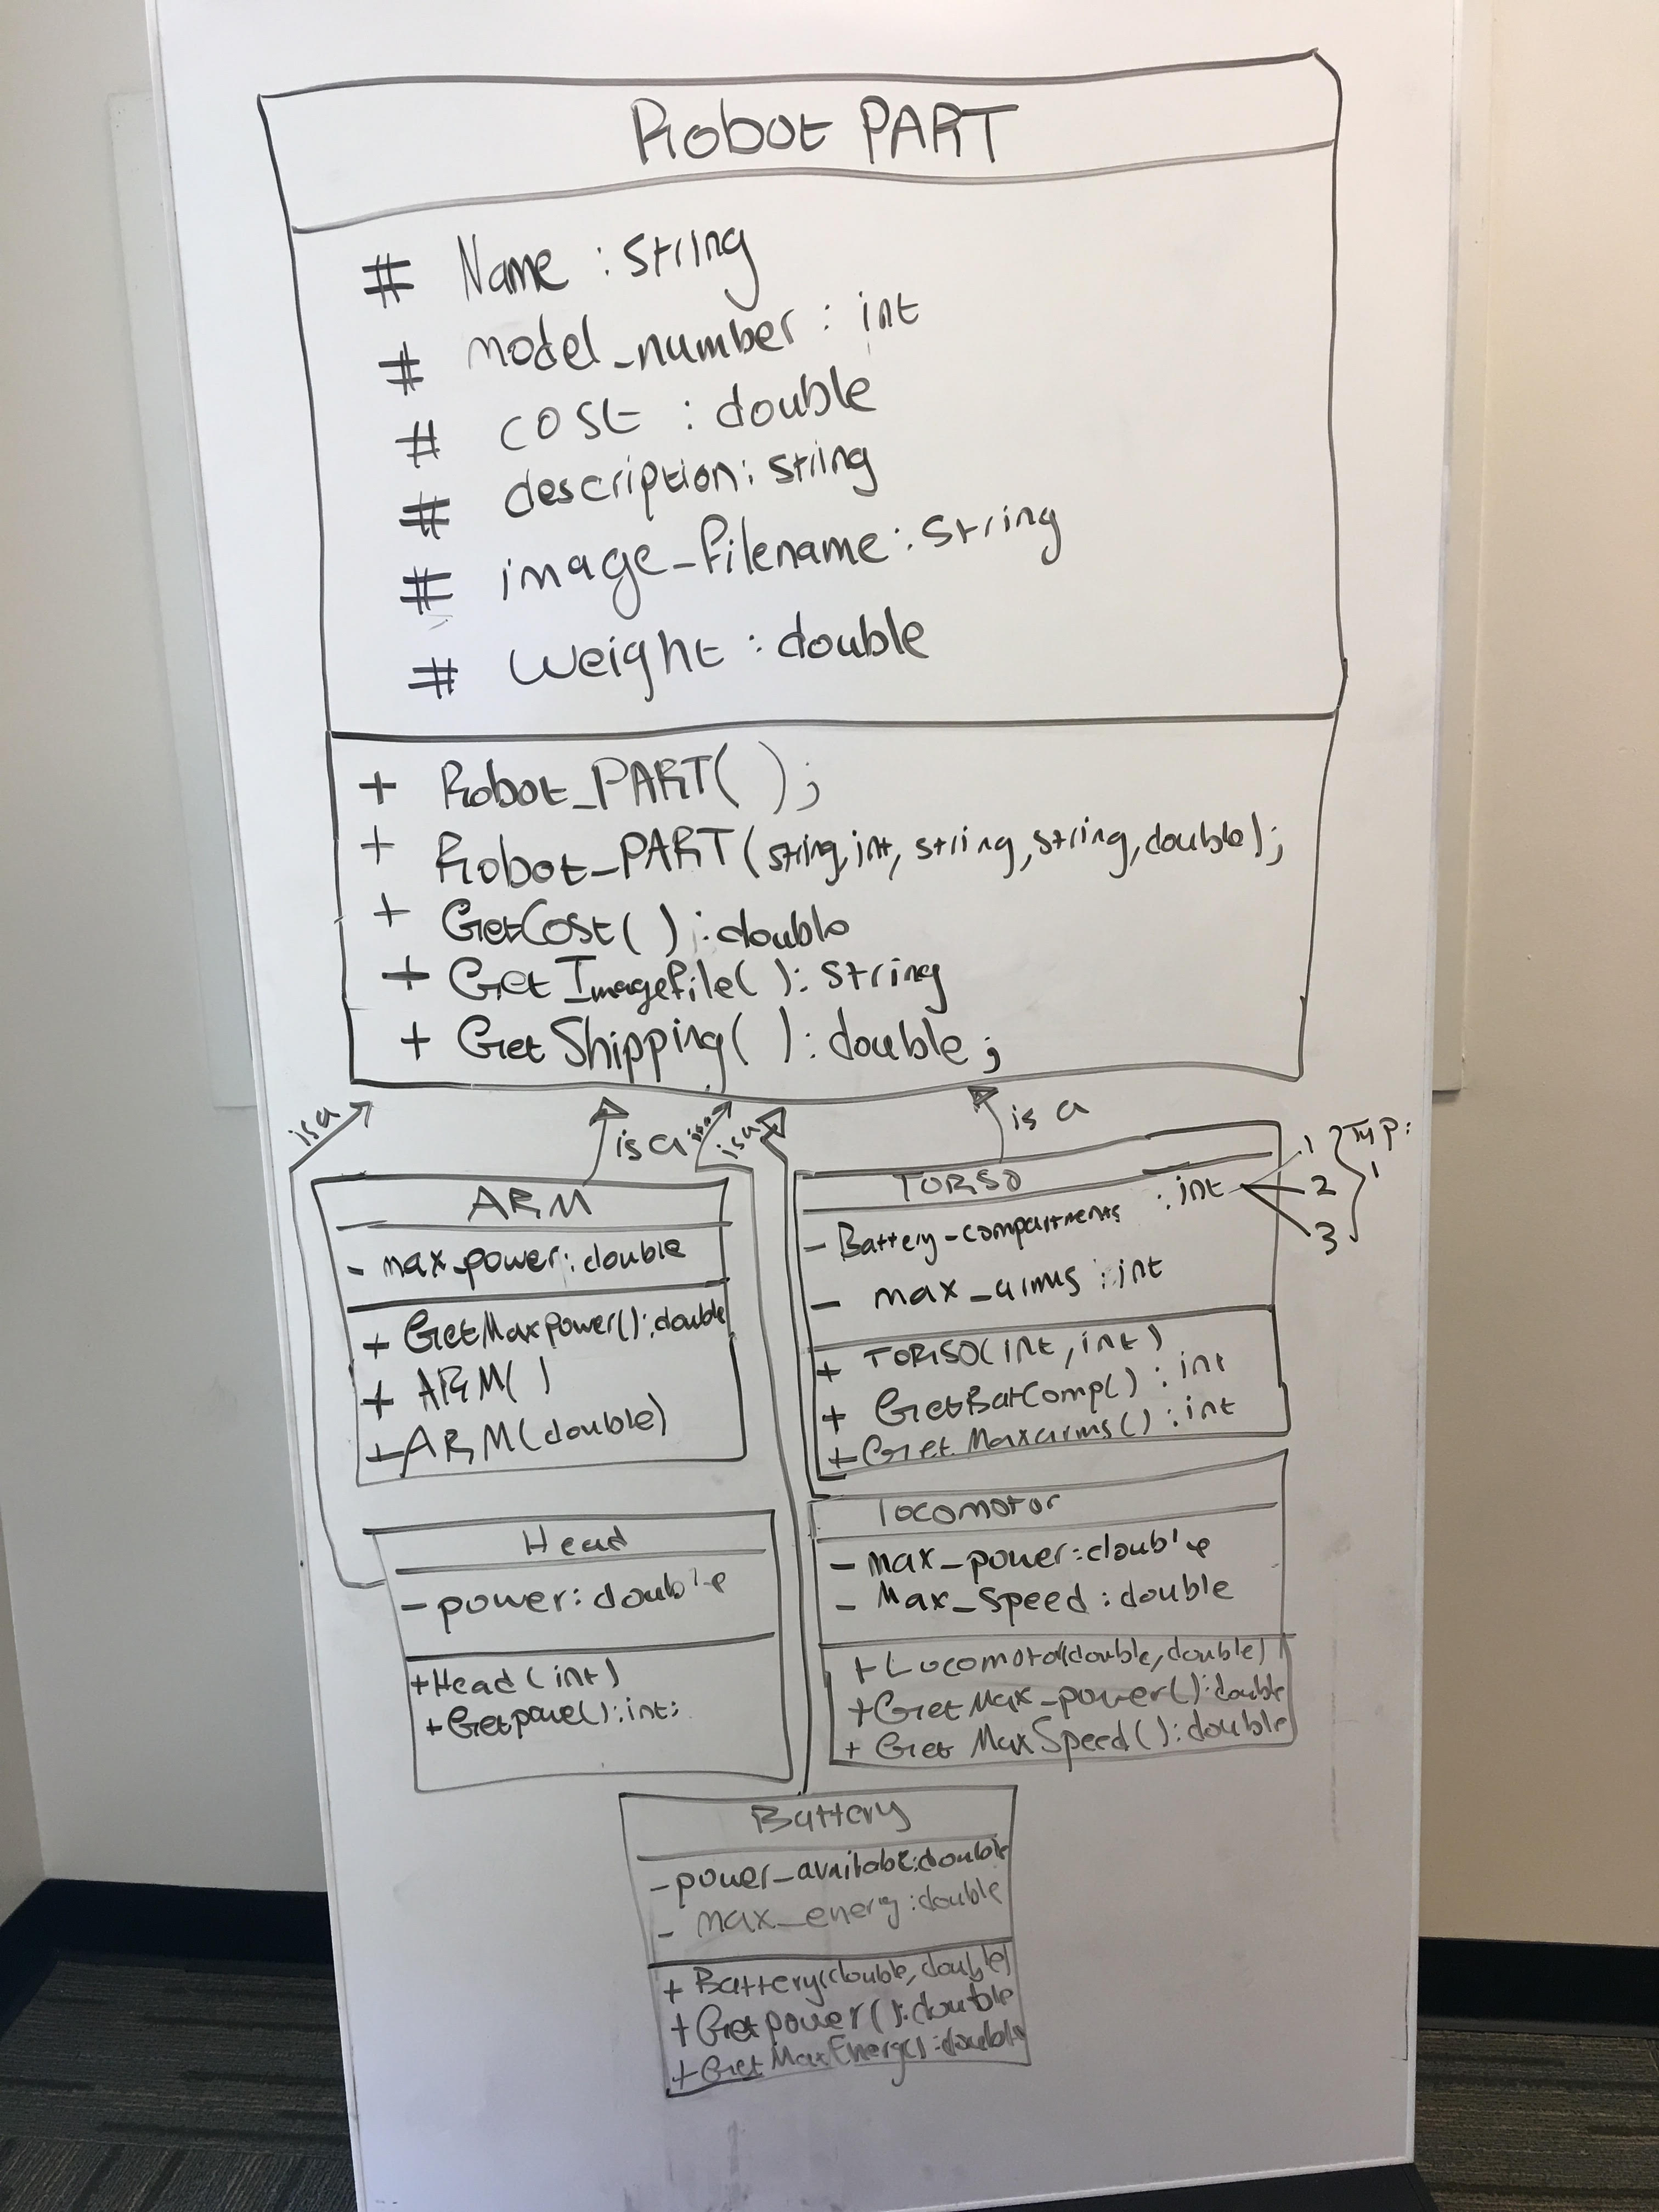 Robot PART
# Name : string
# model_number : int
# cost : double
# description : string
# image_filename : string
# weight : double
+ Robot_PART( );
+ Robot_PART(string,int, string, string, double);
+ GetCost( ) : double
+ Get Imagefile( ) : string
+ Get Shipping( ) : double ;
is a
is a
is a
is a
is a
ARM
- max_power : double
+ GetMaxpower() : double
+ ARM( )
+ ARM(double)
TORSO
- Battery-compartments : int
1
2
3
Typ:
- max_arms : int
+ TORSO(int, int)
+ GetBatComp() : int
+ Get Maxarms() : int
Head
- power : double
+ Head (int)
+ Getpowe() : int;
locomotor
- max_power : double
- Max_Speed : double
+ Locomotor(double, double)
+ GetMax_power() : double
+ Get MaxSpeed() : double
Battery
- power_available : double
- max_energ : double
+ Battery(double, double)
+ Getpower() : double
+ GetMaxEnergy() : double